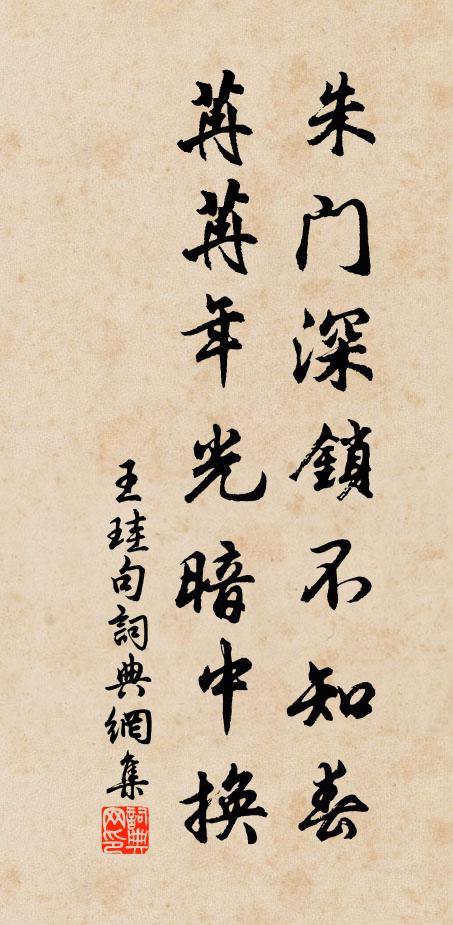 朱門深鎖不知春
苒苒年光暗中換
王珪句詞典網集
詞典網印